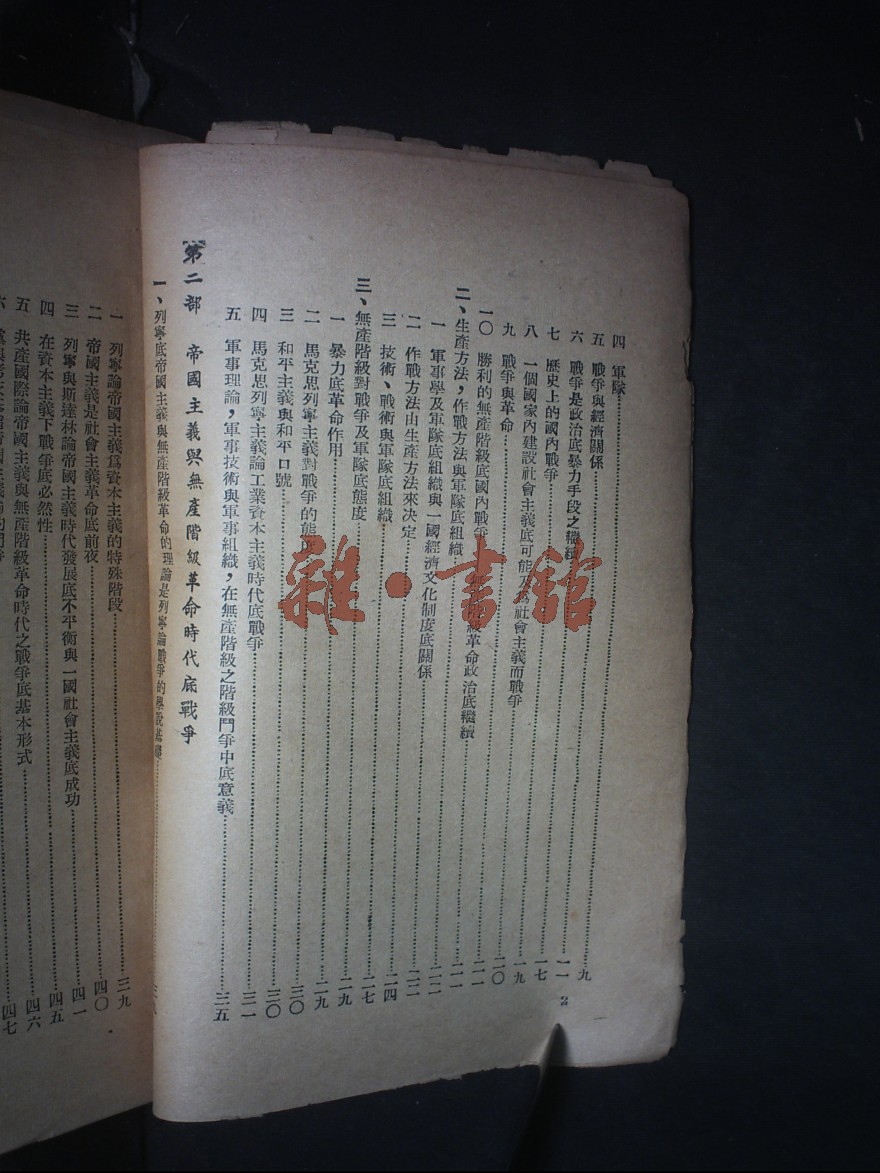 四 軍隊
五 戰爭與經濟關係……九
六 戰爭是政治底暴力手段之繼續……一一
七 歷史上的國內戰爭……一七
八 一個國家內建設社會主義底可能及 社會主義而戰爭……一九
九 戰爭與革命……二〇
一〇 勝利的無產階級底國內戰爭 級革命政治底繼續……二一
二、生產方法，作戰方法與軍隊底組織
一 軍事學及軍隊底組織與一國經濟文化制度底關係……二二
二 作戰方法由生產方法來決定……二二
三 技術、戰術與軍隊底組織……二四
三、無產階級對戰爭及軍隊底態度……二七
一 暴力底革命作用……二九
二 馬克思列寧主義對戰爭的態……二九
三 和平主義與和平口號……三〇
四 馬克思列寧主義論工業資本主義時代底戰爭……三一
五 軍事理論，軍事技術與軍事組織，在無產階級之階級鬥爭中底意義……三五
第二部 帝國主義與無產階級革命時代底戰爭
一、列寧底帝國主義與無產階級革命的理論是列寧論戰爭的學說基礎
一 列寧論帝國主義為資本主義的特殊階段……三九
二 帝國主義是社會主義革命底前夜……四〇
三 列寧與斯達林論帝國主義時代發展底不平衡與一國社會主義底成功……四一
四 在資本主義下戰爭底必然性……四五
五 共產國際論帝國主義與無產階級革命時代之戰爭底基本形式……四六
六……四七
2
雜·書館